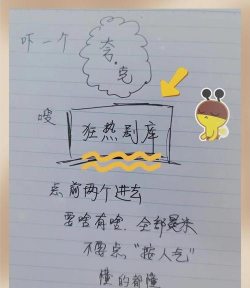 吓一个
夸克
嗖
狂热剧库
点前两个进去
要啥有啥.全部是米
不要点“按人气”
懂的都懂